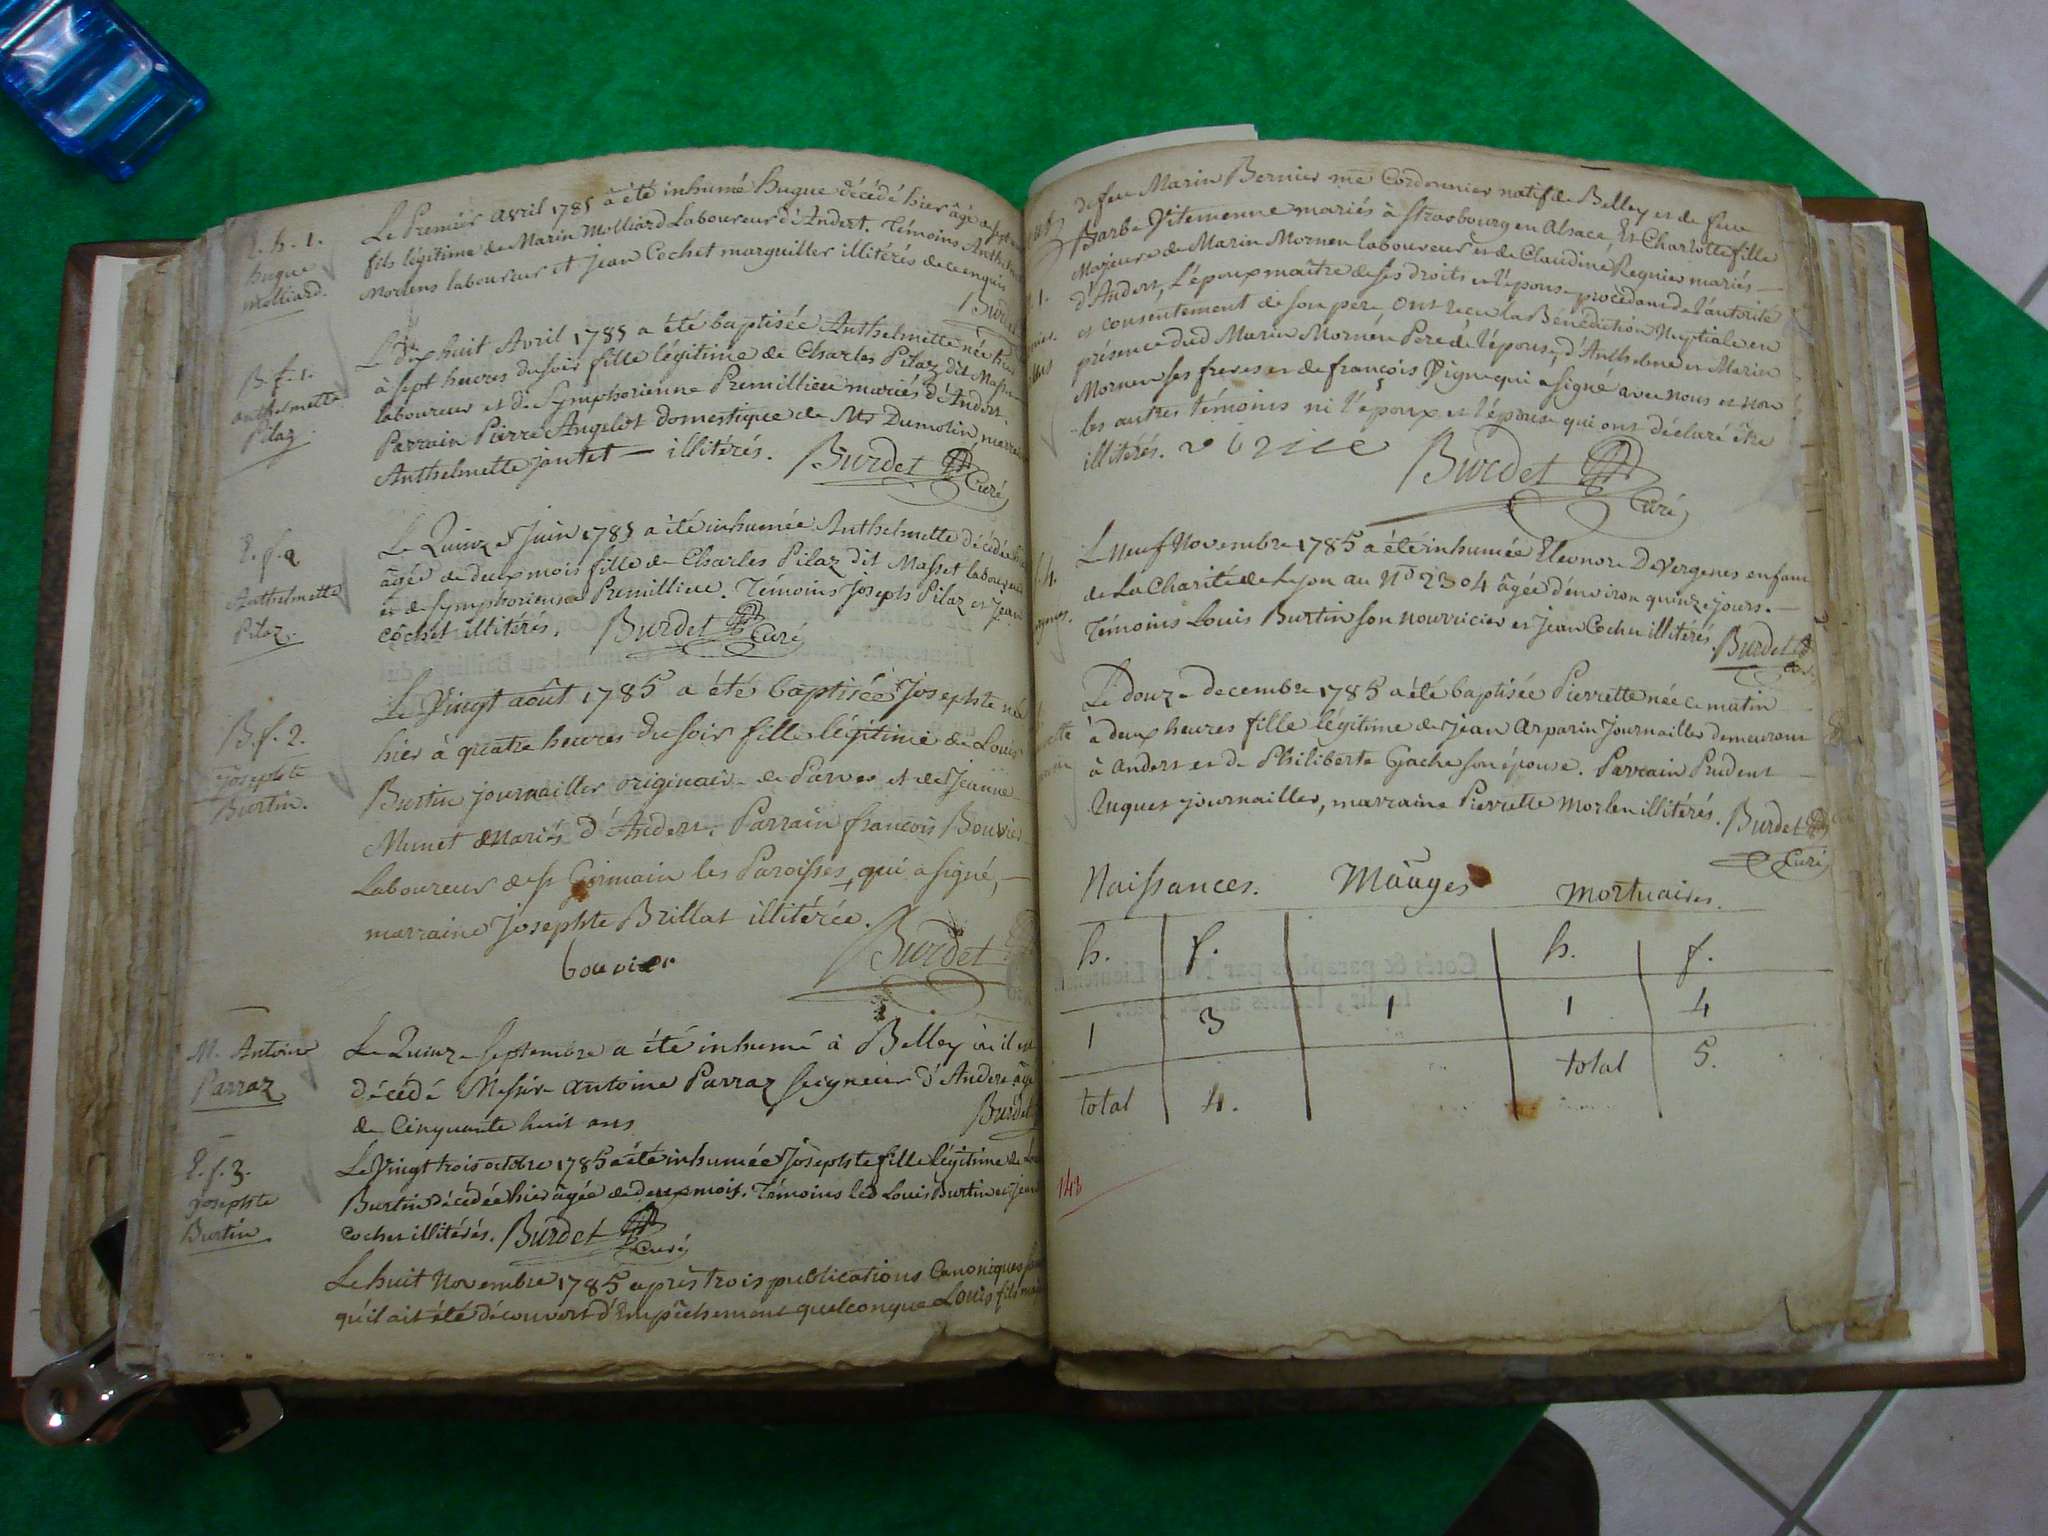 E. h. 1.
hugue
molliard.
Le Premier avril 1785 a été inhumé hugue décédé hier âgé
fils légitime de Marin Molliard Laboureur d'Andert. Témoins Anthelme
Morlens laboureur et Jean Cochet marguiller illitérés de ce enquis
Burdet
B. f. 1.
anthelmette
Pilaz.
Le dix huit Avril 1785 a été baptisée Anthelmette née hier
à sept heures du soir fille légitime de Charles Pilaz dit Masset
laboureur et de Symphorienne Premillieu mariés d'Andert
Parrain Pierre Angelot domestique de Mr Dumolin marraine
Anthelmette jantet — illitérés. Burdet Curé
E. f. 2
Anthelmette
Pilaz.
Le Quinze Juin 1785 a été inhumée Anthelmette décédée hier
âgée de deux mois fille de Charles Pilaz dit Masset laboureur
et de Symphorienne Premillieu. Témoins Joseph Pilaz et Jean
cochet illitérés. Burdet Curé
B. f. 2.
Josephte
Burtin.
Le Vingt août 1785 a été baptisée Josephte née
hier à quatre heures du soir fille légitime de Louis
Burtin journailler originaire de Parves et de Jeanne
Munet mariés d'Andert. Parrain françois Bouvier
Laboureur de st Germain les Paroisses, qui a signé, —
marraine Josephte Brillat illitérée.
bouvier Burdet
M. Antoine
Parraz
Le Quinze septembre a été inhumé à Belley où il est
décédé Messire antoine Parraz seigneur d'Andert âgé
de Cinquante huit ans Burdet
E. f. 3.
Josephte
Burtin
Le Vingt trois octobre 1785 a été inhumée Josephte fille légitime de Louis
Burtin décédée hier âgée de deux mois. Témoins led Louis Burtin et Jean
cochet illitérés. Burdet Curé
Le huit Novembre 1785 après trois publications Canoniques sans
qu'il ait été découvert d'Empêchement quelconque Louis fils
de feu Marin Bernier me Cordonnier natif de Belley et de feue
Barbe Vitemenne mariés à Strasbourg en Alsace, Et Charlotte fille
Majeure de Marin Mornen laboureur et de Claudine Regnier mariés —
d'Andert, L'époux maître de ses droits et l'épouse procedant de l'autorité
et consentement de son père, Ont reçu la Bénédiction Nuptiale en
présence dud Marin Mornen Pere de l'épouse, d'Anthelme et Marin
Mornen ses freres et de françois Vigne qui a signé avec nous et non
les autres témoins ni l'époux et l'épouse qui ont déclaré être
illitérés. Burdet Curé
Le Neuf Novembre 1785 a été inhumée Eleonore DeVergenes enfant
de La Charité de Lyon au No 2304 âgée d'environ quinze jours. —
Témoins Louis Burtin son nourricier et Jean Cochet illitérés. Burdet
Le douze decembre 1785 a été baptisée Pierrette née ce matin
à deux heures fille légitime de Jean Arparin Journailler demeurant
à Andert et de Philiberte Gache son épouse. Parrain Prudent
Juguet journailler, marraine Pierrette Morlen illitérés. Burdet
Curé
Naissances. Mariages mortuaires.
h. f. h. f.
1 3 1 1 4
total 5.
total 4.
143